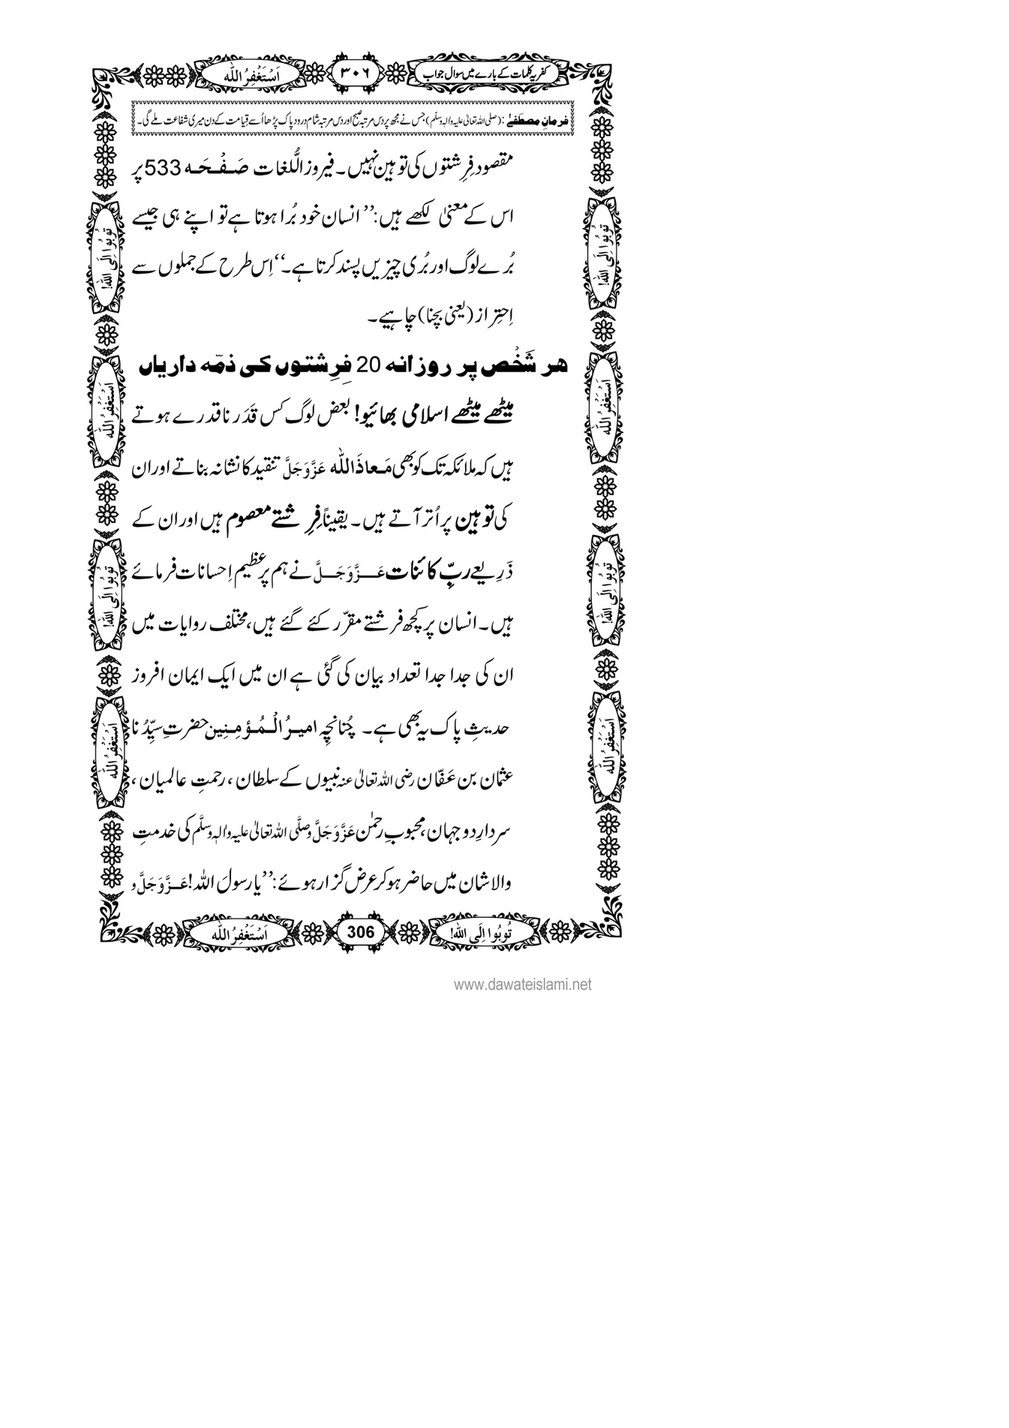 کفریہ کلمات کے بارے میں سوال جواب
۳۰۶
اَسْتَغْفِرُ اللّٰه
فرمانِ مصطَفٰے : (صلی اللہ تعالیٰ علیہ والہ وسلّم) جس نے مجھ پر دس مرتبہ صبح اور دس مرتبہ شام درود پاک پڑھا اُسے قیامت کے دن میری شفاعت ملے گی۔
مقصود فِرِشتوں کی توہین نہیں۔ فیروز اللُّغات صَفْحَہ 533 پر
اس کے معنیٰ لکھے ہیں: ’’انسان خود بُرا ہوتا ہے تو اپنے ہی جیسے
بُرے لوگ اور بُری چیزیں پسند کرتا ہے۔‘‘ اِس طرح کے جملوں سے
اِحتِراز (یعنی بچنا) چاہیے۔
ھر شَخْص پر روزانہ 20 فِرِشتوں کی ذمّہ داریاں
میٹھے میٹھے اسلامی بھائیو! بعض لوگ کس قَدَر نا قدرے ہوتے
ہیں کہ ملائکہ تک کو بھی مَعاذَاللّٰہ عَزَّوَجَلَّ تنقید کا نشانہ بناتے اور ان
کی توہین پر اُتر آتے ہیں۔ یقیناً فِرِشتے معصوم ہیں اور ان کے
ذَرِیعے ربِّ کائنات عَزَّوَجَلَّ نے ہم پر عظیم اِحسانات فرمائے
ہیں۔ انسان پر کچھ فرشتے مقرّر کئے گئے ہیں، مختلف روایات میں
ان کی جدا جدا تعداد بیان کی گئی ہے ان میں ایک ایمان افروز
حدیثِ پاک یہ بھی ہے۔ چُنانچِہ امیرُ الْمُؤمِنِین حضرتِ سیِّدُنا
عثمان بن عَفّان رضی اللہ تعالیٰ عنہ نبیوں کے سلطان ، رحمتِ عالمیان ،
سردارِ دو جہان، محبوبِ رحمٰن عَزَّوَجَلَّ وصلَّی اللہ تعالیٰ علیہ والہٖ وسلَّم کی خدمتِ
والا شان میں حاضر ہو کر عرض گزار ہوئے: ’’یا رسولَ اللہ! عَزَّوَجَلَّ و
تُوبُوا اِلَی اللّٰه!
اَسْتَغْفِرُ اللّٰه
تُوبُوا اِلَی اللّٰه!
اَسْتَغْفِرُ اللّٰه
تُوبُوا اِلَی اللّٰه!
اَسْتَغْفِرُ اللّٰه
تُوبُوا اِلَی اللّٰه!
اَسْتَغْفِرُ اللّٰه
تُوبُوا اِلَی اللّٰه!
306
اَسْتَغْفِرُ اللّٰه
www.dawateislami.net